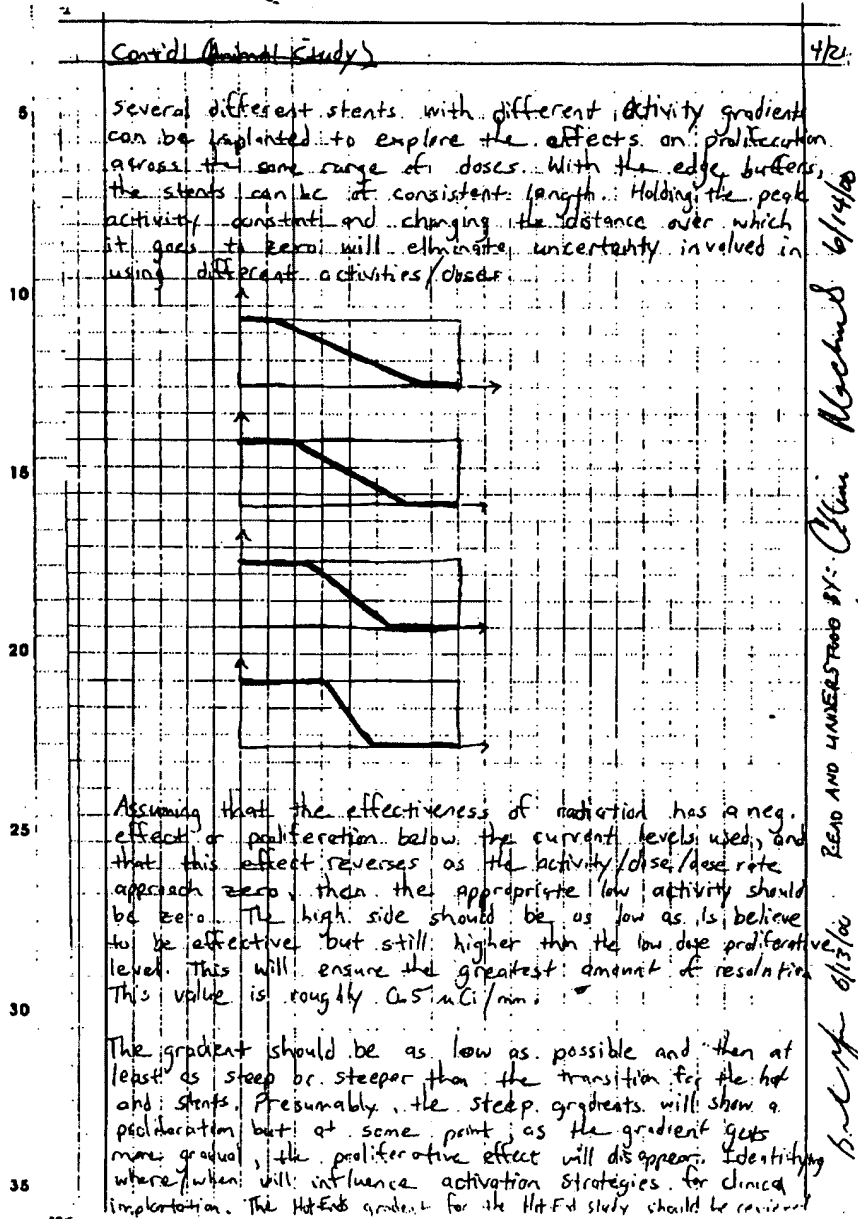 Cont'd (Animal Study)
4/21
5
Several different stents with different activity gradients
can be implanted to explore the effects on proliferation
across the same range of doses. With the edge buffers,
the stents can be of consistent length. Holding the peak
activity constant and changing the distance over which
it goes to zero will eliminate uncertainty involved in
using different activities/doses
10
15
20
Assuming that the effectiveness of radiation has a neg.
25
effect on proliferation below the current levels used, and
that this effect reverses as the activity/dose/dose rate
approach zero, then the appropriate low activity should
be zero. The high side should be as low as is believe
to be effective but still higher than the low dose proliferative
level. This will ensure the greatest amount of resolution
This value is roughly 0.5 uCi/mm.
30
The gradient should be as low as possible and then at
least as steep or steeper than the transition for the hot
end stents. Presumably, the steep gradients will show a
proliferation but at some point, as the gradient gets
more gradual, the proliferative effect will disappear. Identifying
35
where/when will influence activation strategies for clinical
implantation. The Hot Ends gradient for the Hot End study should be reviewed
6/13/00 READ AND UNDERSTOOD BY: 6/14/00